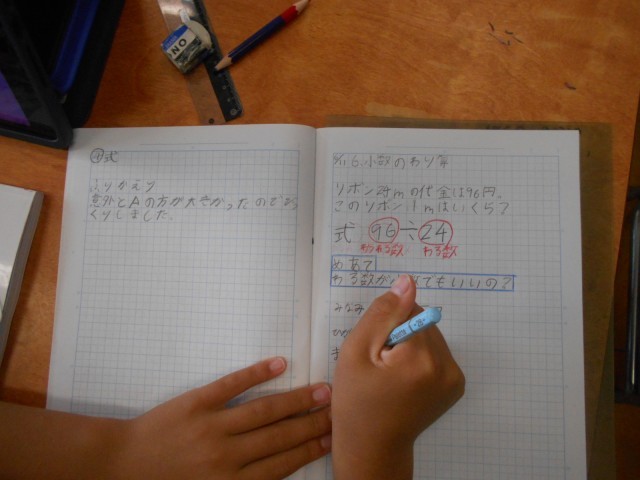 ④式
ふりかえり
意外とAの方が大きかったのでびっ
くりしました。
小数のわり算
リボン2.4mの代金は96円。
このリボン1mはいくら?
式 96÷24
わられる数 わる数
めあて
わる数が てもいいの?
みなみ